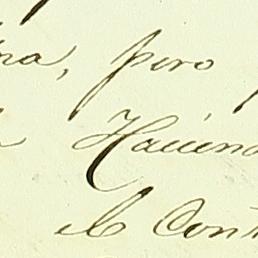 na, pero
Haciend
el Cont